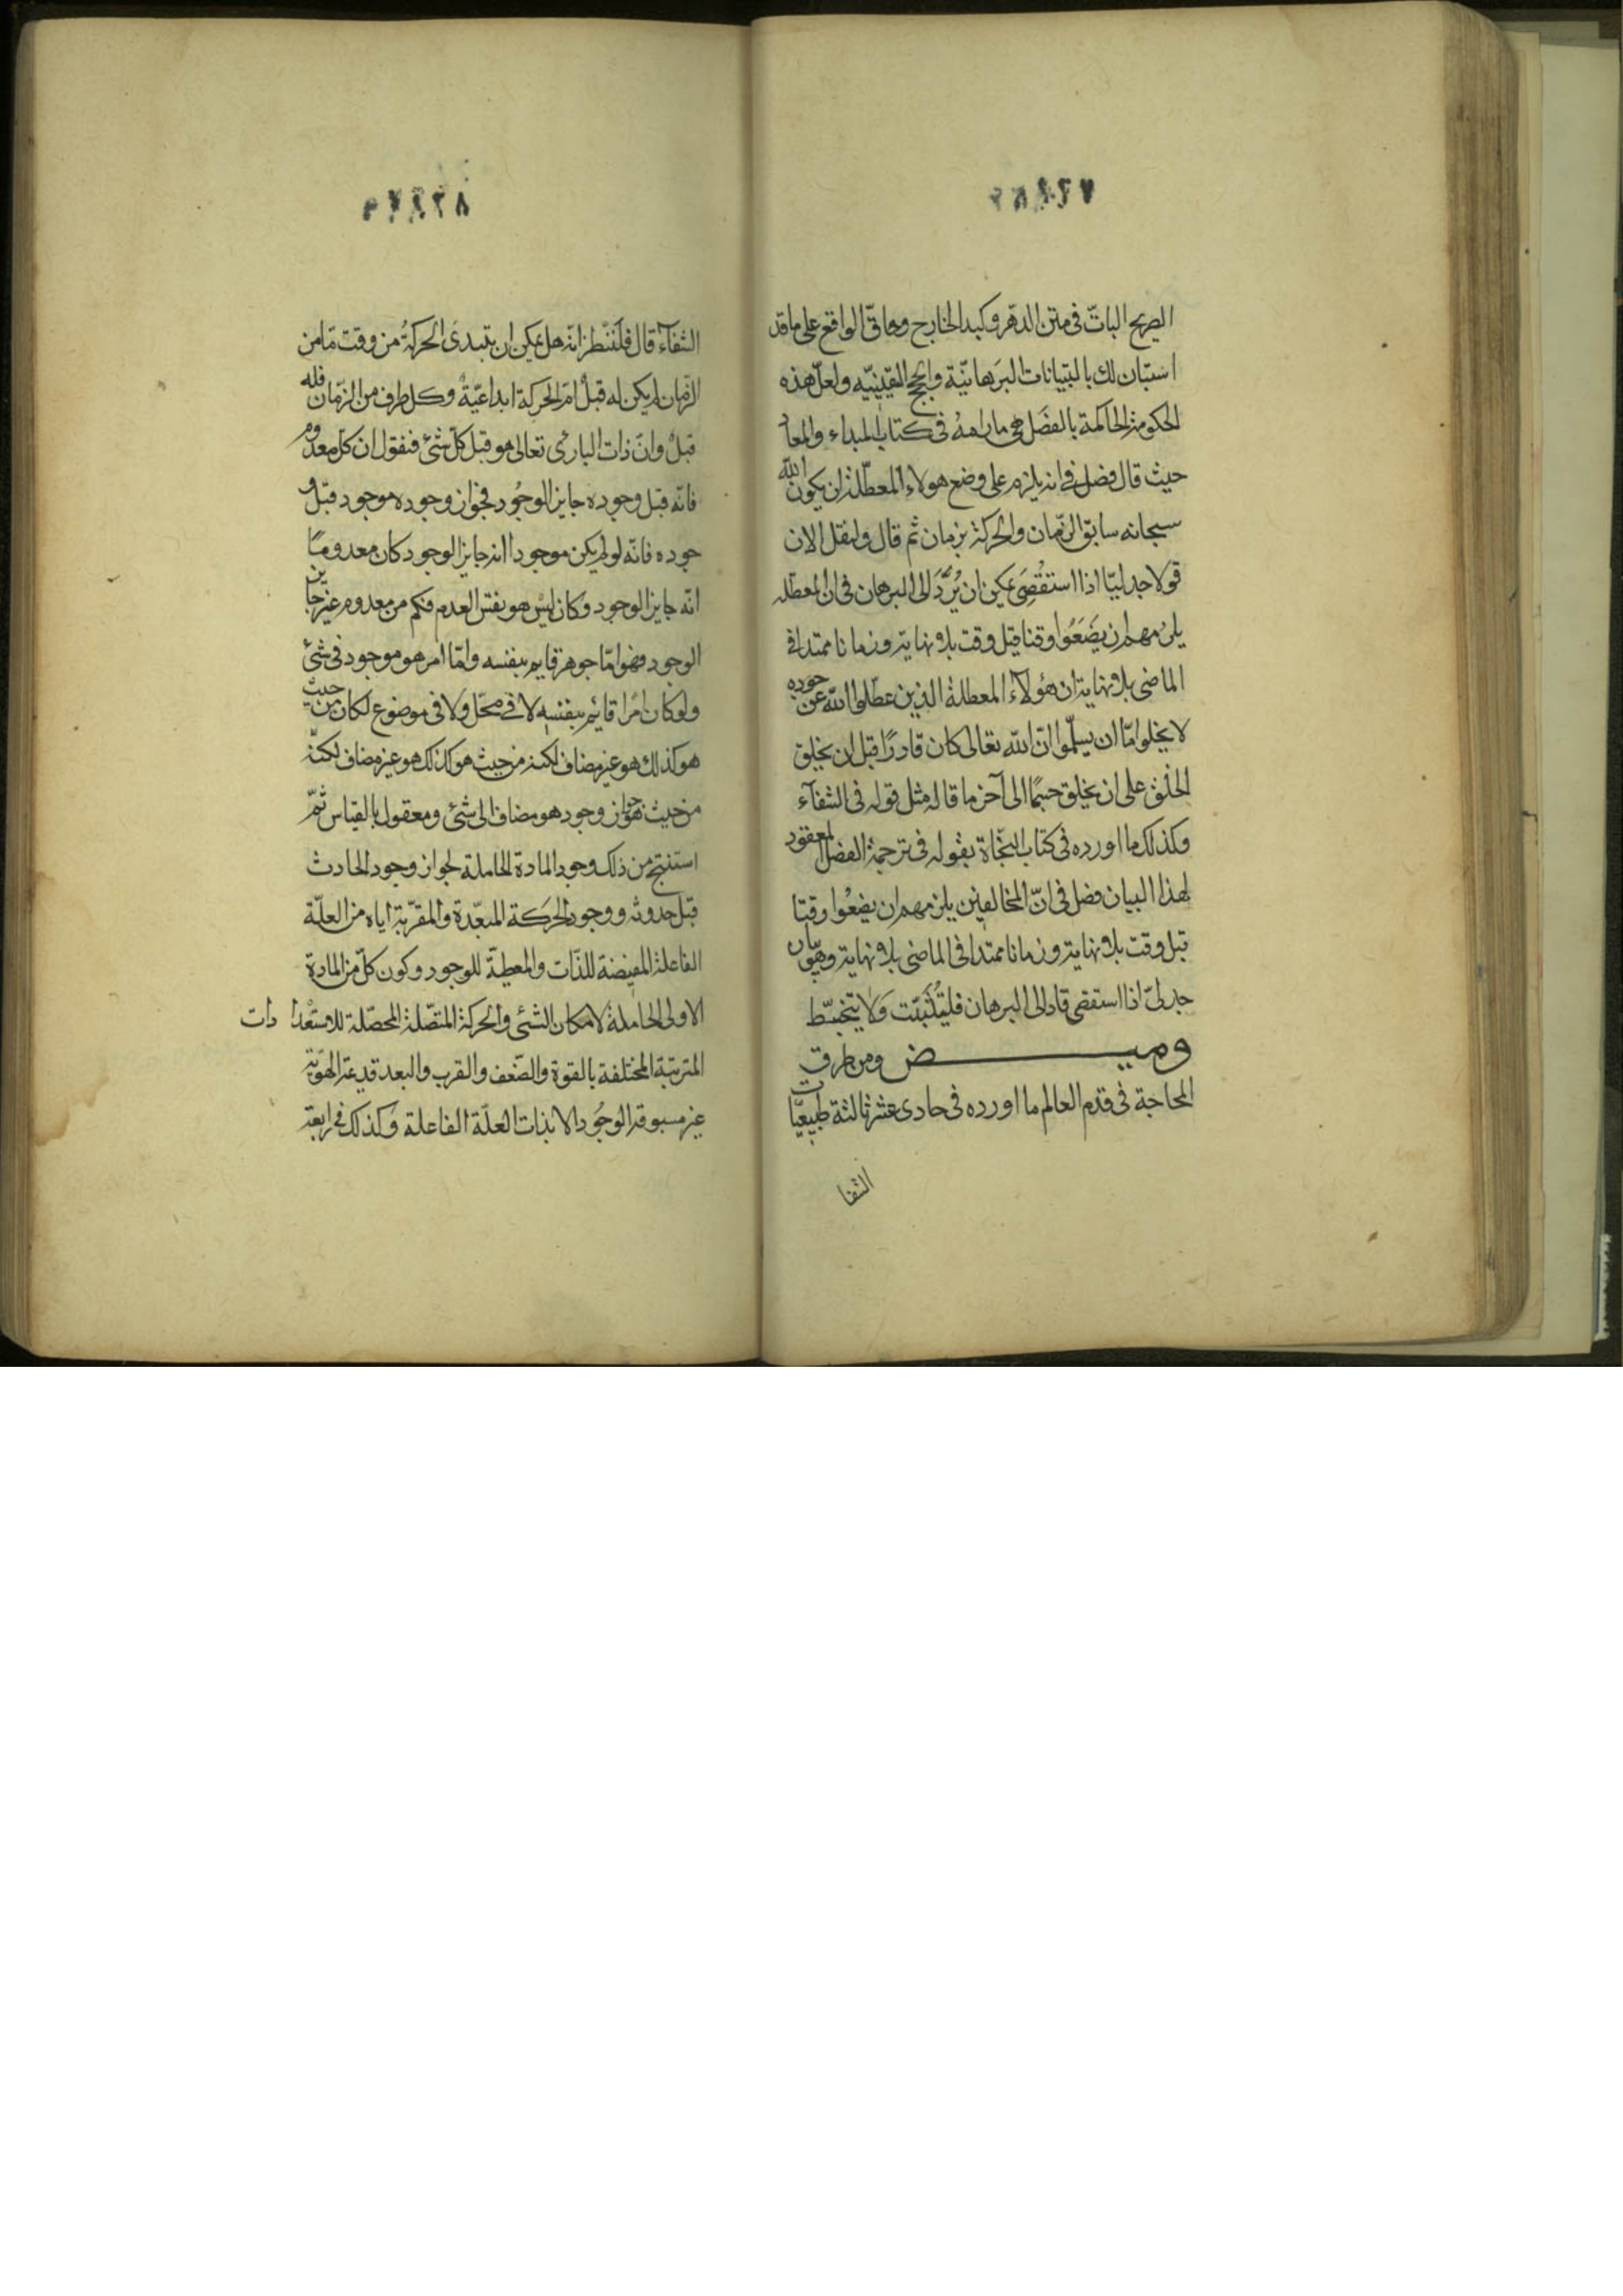 الصريح البات فى متن الدهر وكبد الخارج وحاق الواقع على ما قد
استبان لك بالبيانات البرهانية والحجج اليقينيه ولعل هذه
الحكومة الحاكمة بالفصل هى ما رامه فى كتاب المبداء والمعاد
حيث قال فصل فى انه يلزم على وضع هولاء المعطلة ان يكون الله
سبحانه سابق الزمان والحركة بزمان ثم قال ولنقل الان
قولا جدليا اذا استقصى يمكن ان يرد الى البرهان فى ان المعطله
يلزمهم ان يضعوا وقتا قبل وقت بلا نهاية وزمانا ممتدا فى
الماضى بلا نهاية ان هؤلاء المعطلة الذين عطلوا الله عن جوده
لا يخلوا اما ان يسلموا ان الله تعالى كان قادرا قبل ان يخلق
الخلق على ان يخلق جسما الى آخر ما قاله مثل قوله فى الشفآء
وكذلك ما اورده فى كتاب النجاة بقوله فى ترجمة الفصل المعقود
لهذا البيان فصل فى ان المخالفين يلزمهم ان يضعوا وقتا
قبل وقت بلا نهاية وزمانا ممتدا فى الماضى بلا نهاية وهو بيان
جدلى اذا استقصى قاد الى البرهان فليتثبت ولا يتخبط
وميض ومن طرق
المحاجة فى قدم العالم ما اورده فى حادى عشر ثالثة طبيعيات
الشفا
الشفآء قال فلننظر انه هل يمكن ان تبتدئ الحركة من وقت ما من
الزمان لم يكن له قبل ام الحركة ابداعية وكل طرف من الزمان فله
قبل وان ذات البارى تعالى هو قبل كل شئ فنقول ان كل معدوم
فانه قبل وجوده جايز الوجود فجواز وجوده موجود قبل و
جوده فانه لو لم يكن موجودا انه جايز الوجود كان معدوما
انه جايز الوجود وكان ليس هو نفس العدم فكم من معدوم غير جايز
الوجود فهو اما جوهر قايم بنفسه واما امر هو موجود فى شئ
ولو كان امرا قائم بنفسه لا فى محل ولا فى موضوع لكان من حيث
هو كذلك هو غير مضاف لكنه من حيث هو كذلك هو غير مضاف لكنه
من حيث هو جواز وجود هو مضاف الى شئ ومعقول بالقياس ثم
استنتج من ذلك وجود المادة الحاملة لجواز وجود الحادث
قبل حدوثه ووجود الحركة المبعدة والمقربة اياه من العلة
الفاعلة المفيضة للذات والمعطية للوجود وكون كل من المادة
الاولى الحاملة لامكان الشئ والحركة المتصلة المحصلة للاستعدادات
المترتبة المختلفة بالقوة والضعف والقرب والبعد قديمة الهوية
غير مسبوقة الوجود الا بذات العلة الفاعلة وكذلك فى رابعة